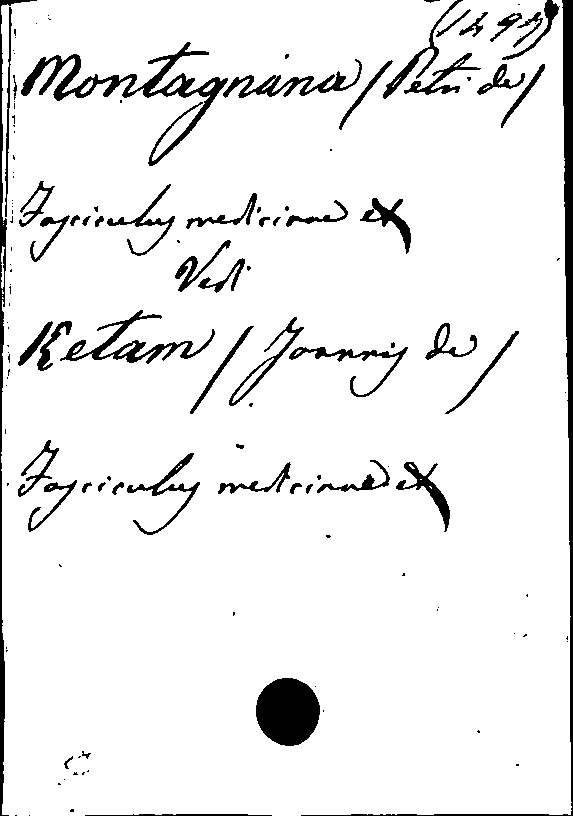 (1495)
Montagnana / Petri de /
Fasciculus medicinae etc
Vedi
Ketam / Joannis de /
Fasciculus medicinae etc